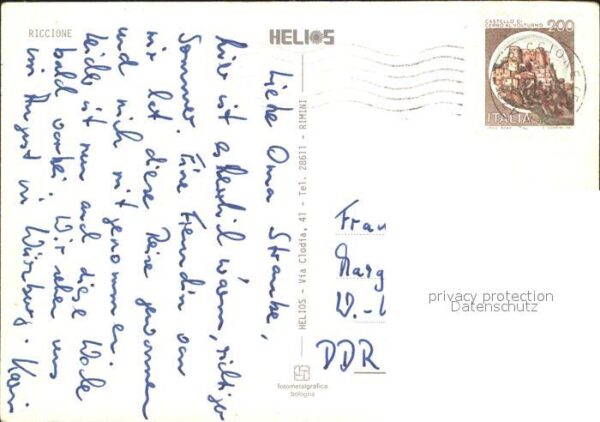 RICCIONE
HELIOS
CASTELLO DI
CERRO AL VOLTURNO
200
ITALIA
Liebe Oma Straube,
hier ist es herrlich warm, richtiger
Sommer. Eine Freundin von
mir hat diese Reise gewonnen
und mich mitgenommen.
Leider ist nun auch diese Woche
bald vorbei. Wir sehen uns
im August in Würzburg.
HELIOS - Via Clodia, 41 - Tel. 28611 - RIMINI
Frau
Marg
W.-
DDR
privacy protection
Datenschutz
fotometalgrafica
bologna